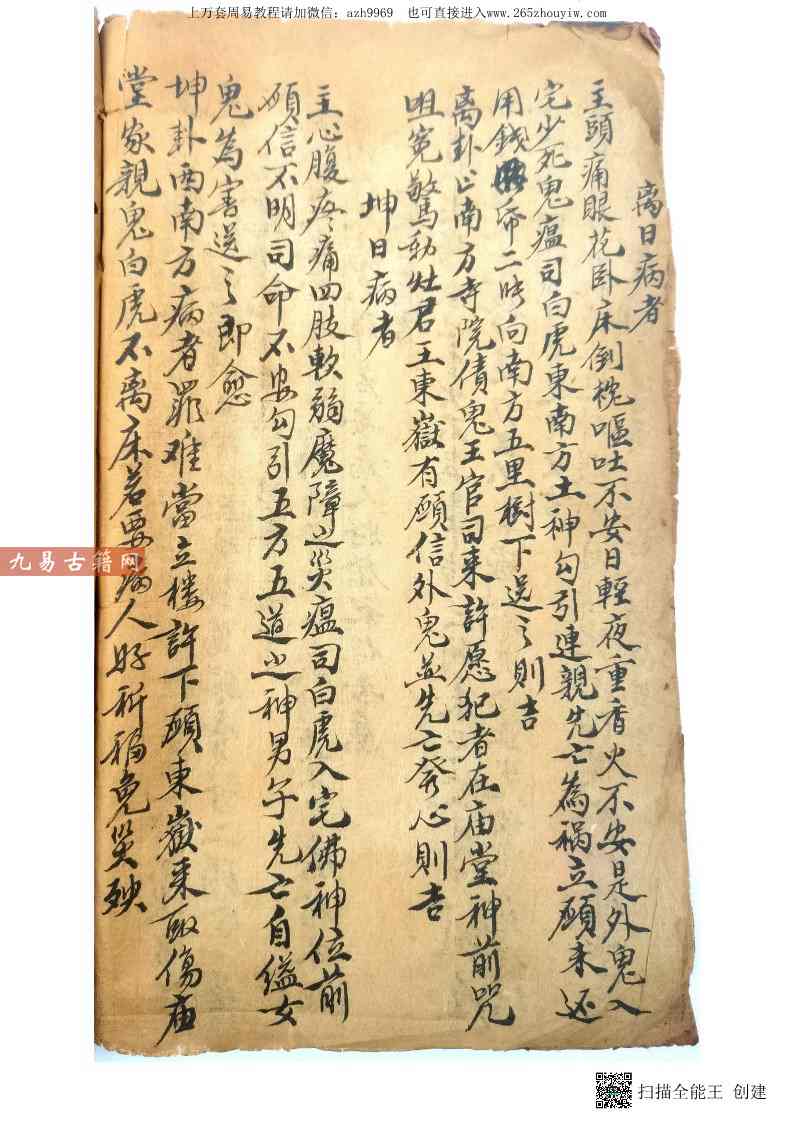 上万套周易教程请加微信：azh9969 也可直接进入www.265zhouyiw.com
离日病者
主頭痛眼花卧床倒枕嘔吐不安日輕夜重香火不安是外鬼入
宅少死鬼瘟司白虎東南方土神勾引連親先亡為禍立願未还
用錢帋二時向南方五里樹下送之則吉
离卦占南方寺院債鬼王官司来許愿犯者在庙堂神前咒
咀冤驚動灶君王東嶽有願信外鬼並先亡発心則吉
坤日病者
主心腹疼痛四肢軟弱魔障之災瘟司白虎入宅佛神位前
願信不明司命不安勾引五方五道之神男子先亡自缢女
鬼為害送之即愈
坤卦西南方病者罪难當立楼許下願東嶽来取傷庙
堂家親鬼白虎不离床若要病人好祈福免災殃
九易古籍网
扫描全能王 创建